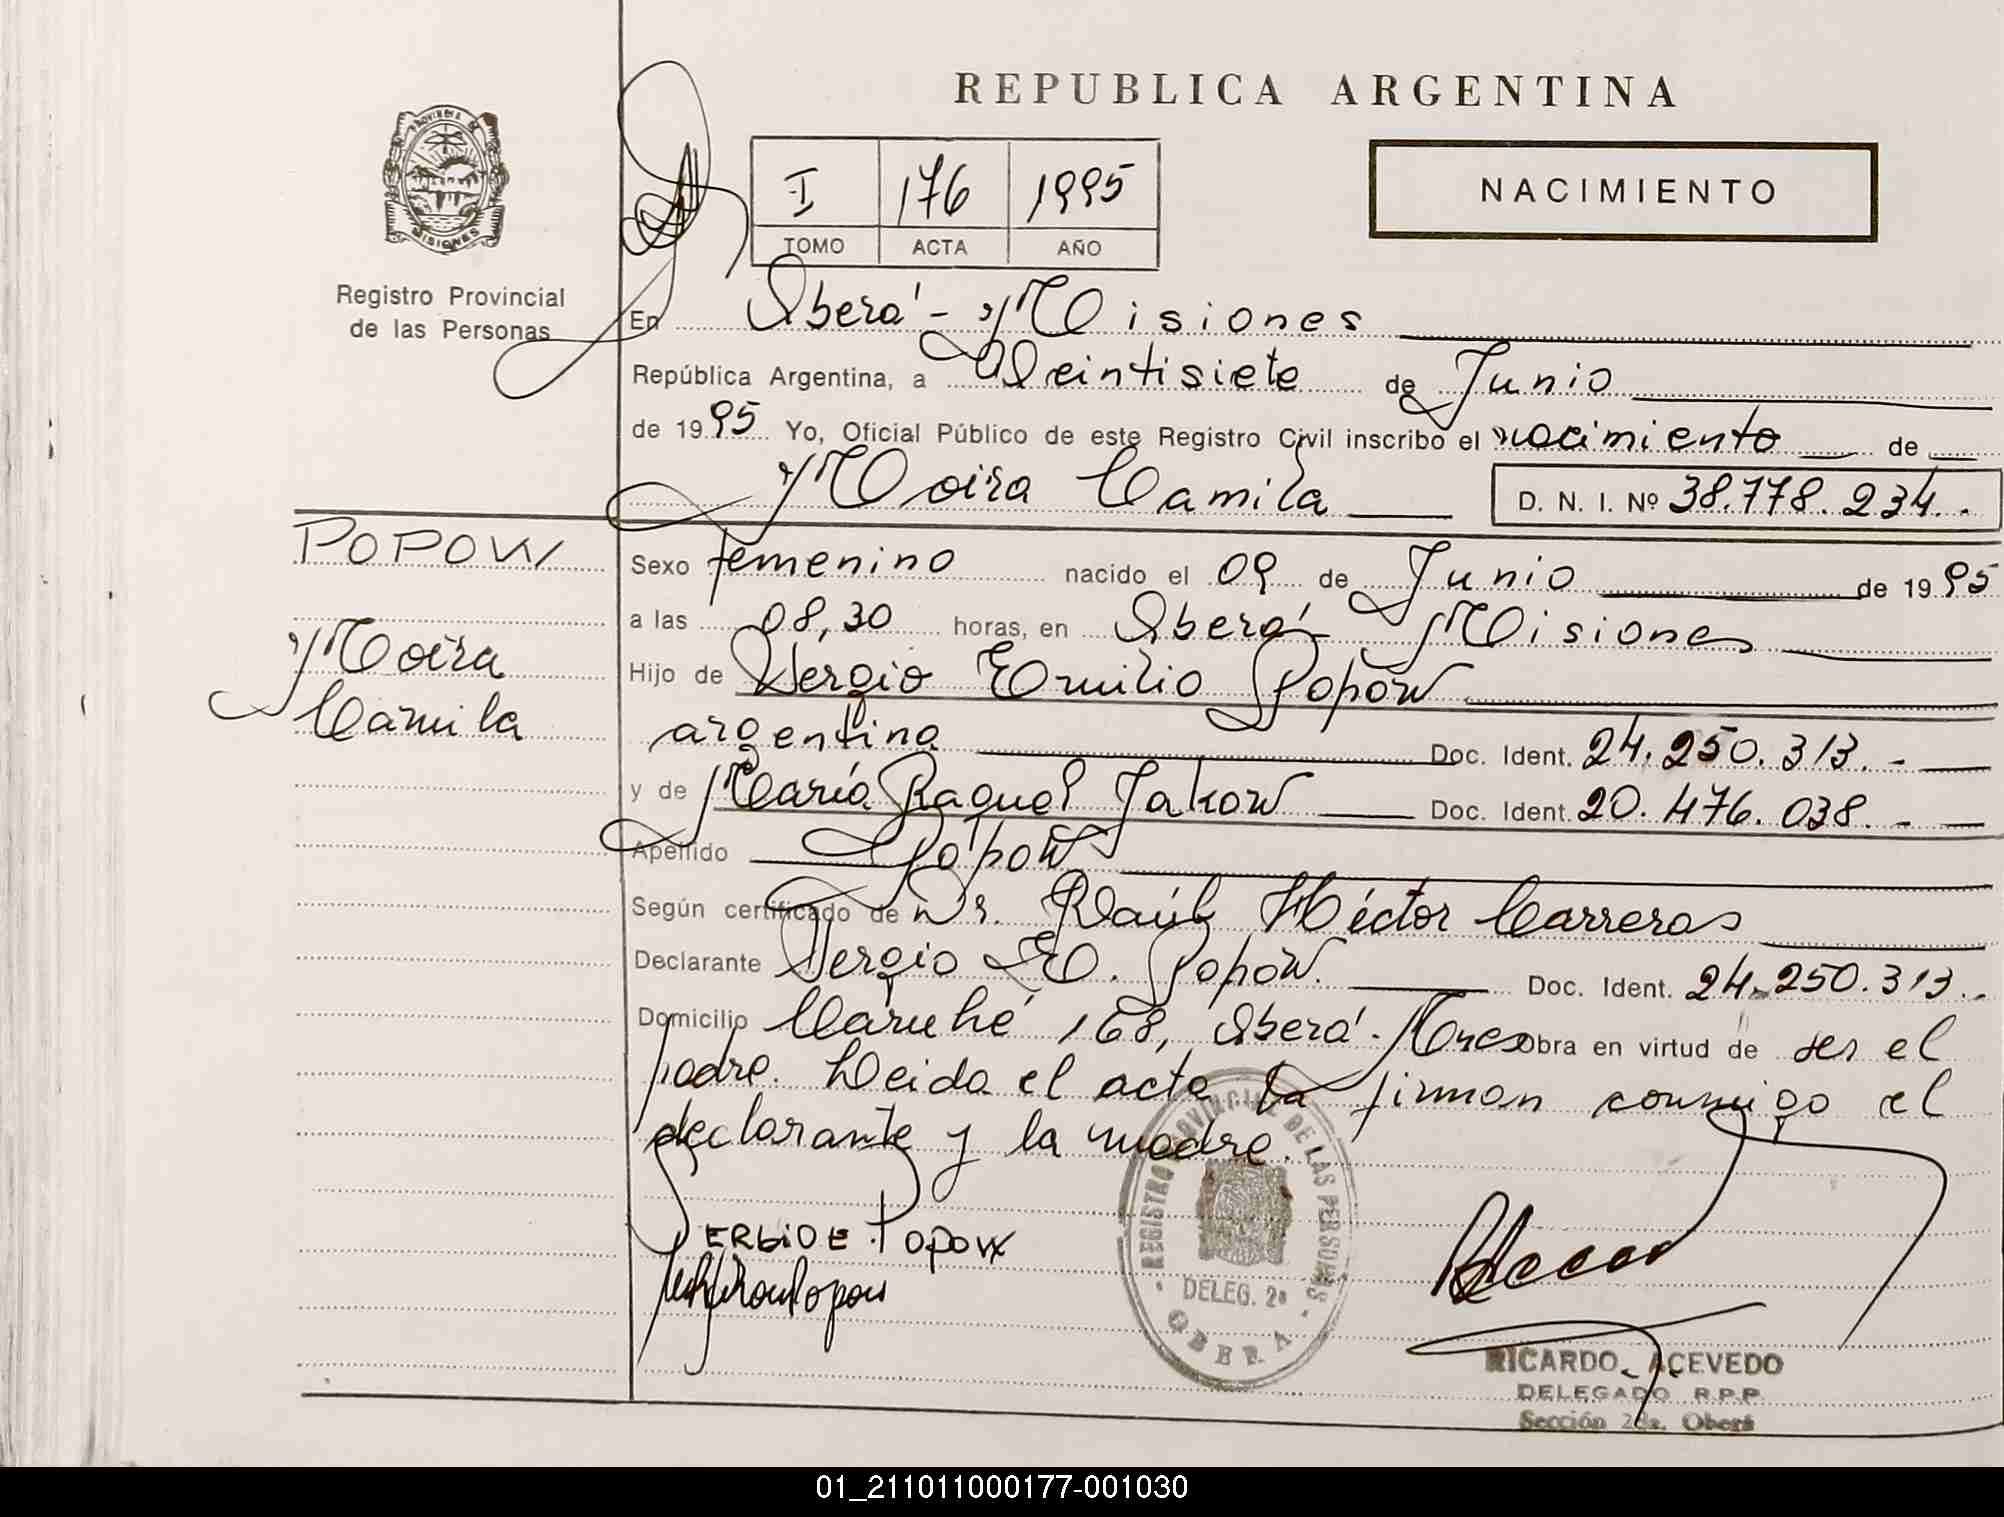 REPUBLICA ARGENTINA
PROVINCIA DE
MISIONES
Registro Provincial
de las Personas
I 176 1995
TOMO ACTA AÑO
NACIMIENTO
En Oberá - Misiones
República Argentina, a Veintisiete de Junio
de 1995 Yo, Oficial Público de este Registro Civil inscribo el nacimiento de
Moira Camila D. N. I. Nº 38.778.234.-
POPOW
Moira
Camila
Sexo femenino nacido el 09 de Junio de 1995
a las 08,30 horas, en Oberá - Misiones
Hijo de Sergio Emilio Popow
argentina Doc. Ident. 24.250.313.-
y de María Raquel Jakow Doc. Ident. 20.476.038.-
Apellido Popow
Según certificado de Dr. Raúl Héctor Carreras
Declarante Sergio E. Popow. Doc. Ident. 24.250.313.-
Domicilio 168, Oberá - Mnes Obra en virtud de ser el
padre. Leida el acta la firman conmigo el
declarante y la madre.
SERGIO E. POPOW
REGISTRO PROVINCIAL DE LAS PERSONAS
DELEG. 2ª
OBERA
RICARDO ACEVEDO
DELEGADO R.P.P.
Sección 2da. Oberá
01_211011000177-001030